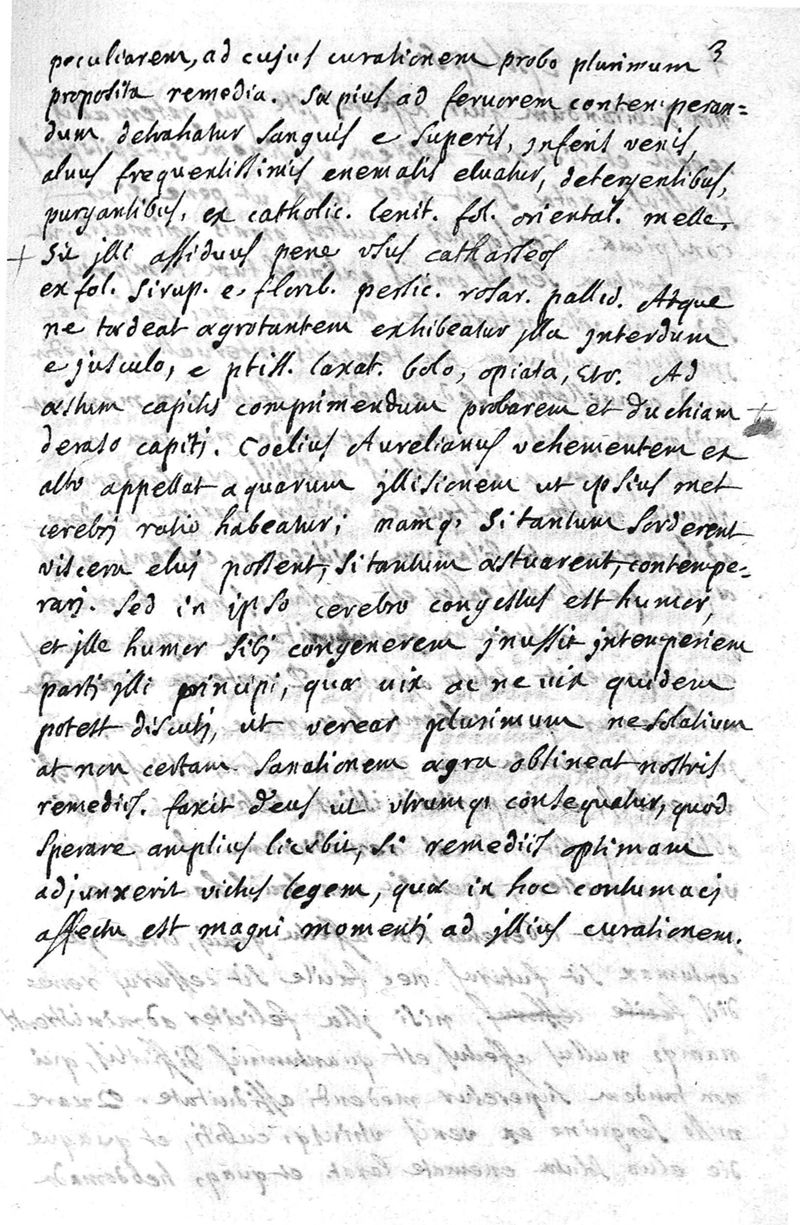 3
peculiarem, ad cujus curationem probo plurimum
proposita remedia. Sæpius ad feruorem contemperan=
dum detrahatur sanguis e superis, inferis venis,
aluus frequentissimis enematis eluatur, detergentibus,
purgantibus, ex catholic. lenit. fol. oriental. melle.
+ Sit illi assiduus pene vsus catharseos
ex fol. sirup. e. florib. persic. rosar. pallid. Atque
ne tædeat ægrotantem exhibeatur illa interdum
e jusculo, e ptiss. laxat. bolo, opiata, etc. Ad
æstum capitis comprimendum probarem et duchiam +
deraso capiti. Coelius Aurelianus vehementem ex
alto appellat aquarum jllisionem ut ipsius met
cerebri ratio habeatur; namq, si tantum sorderent
viscera elui possent, si tantum æstuarent, contempe=
rari. Sed in ipso cerebro congestus est humor,
et jlle humor sibj congenerem jnussit jntemperiem
partj jlli principi, quæ uix ac ne uix quidem
potest discutj, ut verear plurimum ne solatium
at non certam sanationem ægra obtineat nostris
remediis. faxit deus ut vtrumq, consequatur, quod
sperare amplius licebit, si remediis optimam
adjunxerit victus legem, quæ in hoc contumacj
affectu est magni momentj ad jllius curationem.